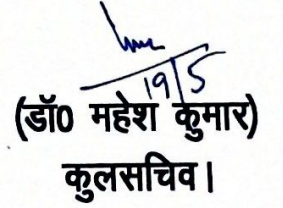 19/5
(डॉ0 महेश कुमार)
कुलसचिव।